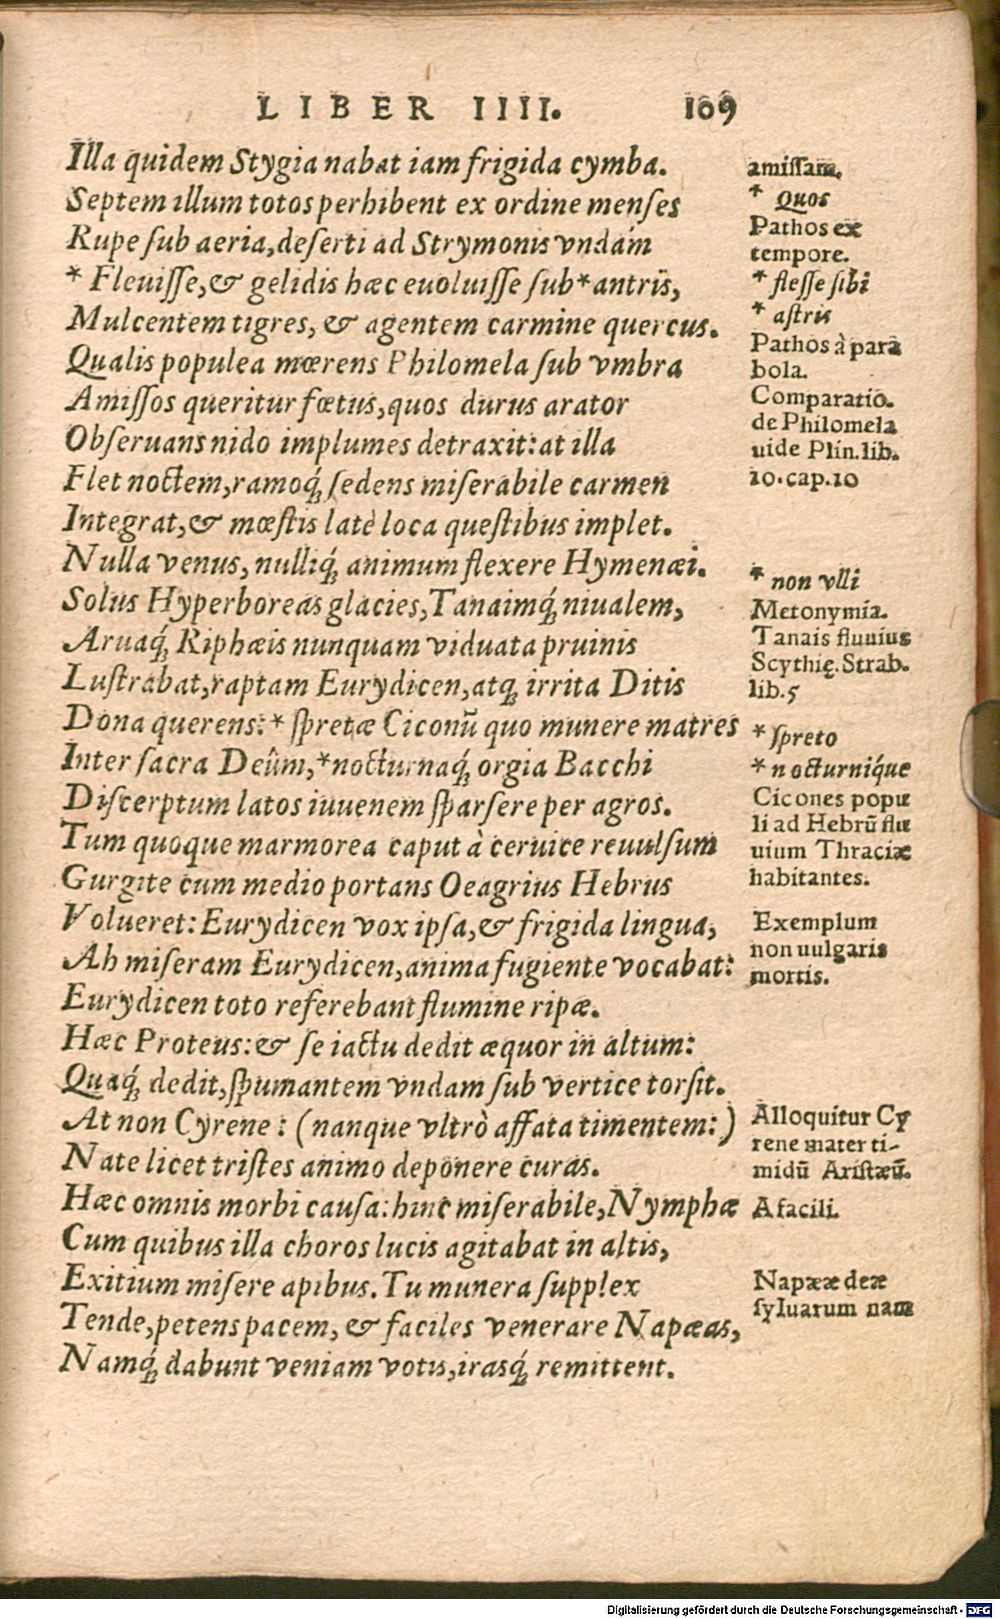 LIBER IIII. 109
Illa quidem Stygia nabat iam frigida cymba.
Septem illum totos perhibent ex ordine menſes
Rupe ſub aeria, deſerti ad Strymonis vndam
* Fleuiſſe, & gelidis hæc euoluiſſe ſub * antris,
Mulcentem tigres, & agentem carmine quercus.
Qualis populea mœrens Philomela ſub vmbra
Amiſſos queritur fœtus, quos durus arator
Obſeruans nido implumes detraxit: at illa
Flet noctem, ramoq́; ſedens miſerabile carmen
Integrat, & mœſtis latè loca queſtibus implet.
Nulla venus, nulliq́; animum flexere Hymenæi.
Solus Hyperboreas glacies, Tanaimq́; niualem,
Aruaq́; Riphæis nunquam viduata pruinis
Luſtrabat, raptam Eurydicen, atq; irrita Ditis
Dona querens: * ſpretæ Ciconũ quo munere matres
Inter ſacra Deûm, * nocturnaq́; orgia Bacchi
Diſcerptum latos iuuenem ſparſere per agros.
Tum quoque marmorea caput à ceruice reuulſum
Gurgite cum medio portans Oeagrius Hebrus
Volueret: Eurydicen vox ipſa, & frigida lingua,
Ah miſeram Eurydicen, anima fugiente vocabat:
Eurydicen toto referebant flumine ripæ.
Hæc Proteus: & ſe iactu dedit æquor in altum:
Quaq́; dedit, ſpumantem vndam ſub vertice torſit.
At non Cyrene: (nanque vltrò affata timentem:)
Nate licet triſtes animo deponere curas.
Hæc omnis morbi cauſa: hinc miſerabile, Nymphæ
Cum quibus illa choros lucis agitabat in altis,
Exitium miſere apibus. Tu munera ſupplex
Tende, petens pacem, & faciles venerare Napæas,
Namq́; dabunt veniam votis, iraſq́; remittent.
amiſſam.
* Quos
Pathos ex
tempore.
* fleſſe ſibi
* aſtris
Pathos à para
bola.
Comparatio.
de Philomela
uide Plin. lib.
10. cap. 10
* non vlli
Metonymia.
Tanais fluuius
Scythię. Strab.
lib. 5
* ſpreto
* nocturníque
Cicones popu
li ad Hebrũ flu
uium Thraciæ
habitantes.
Exemplum
non uulgaris
mortis.
Alloquitur Cy
rene mater ti-
midũ Ariſtæũ.
A facili.
Napææ deæ
ſyluarum nam
Digitalisierung gefördert durch die Deutsche Forschungsgemeinschaft - DFG